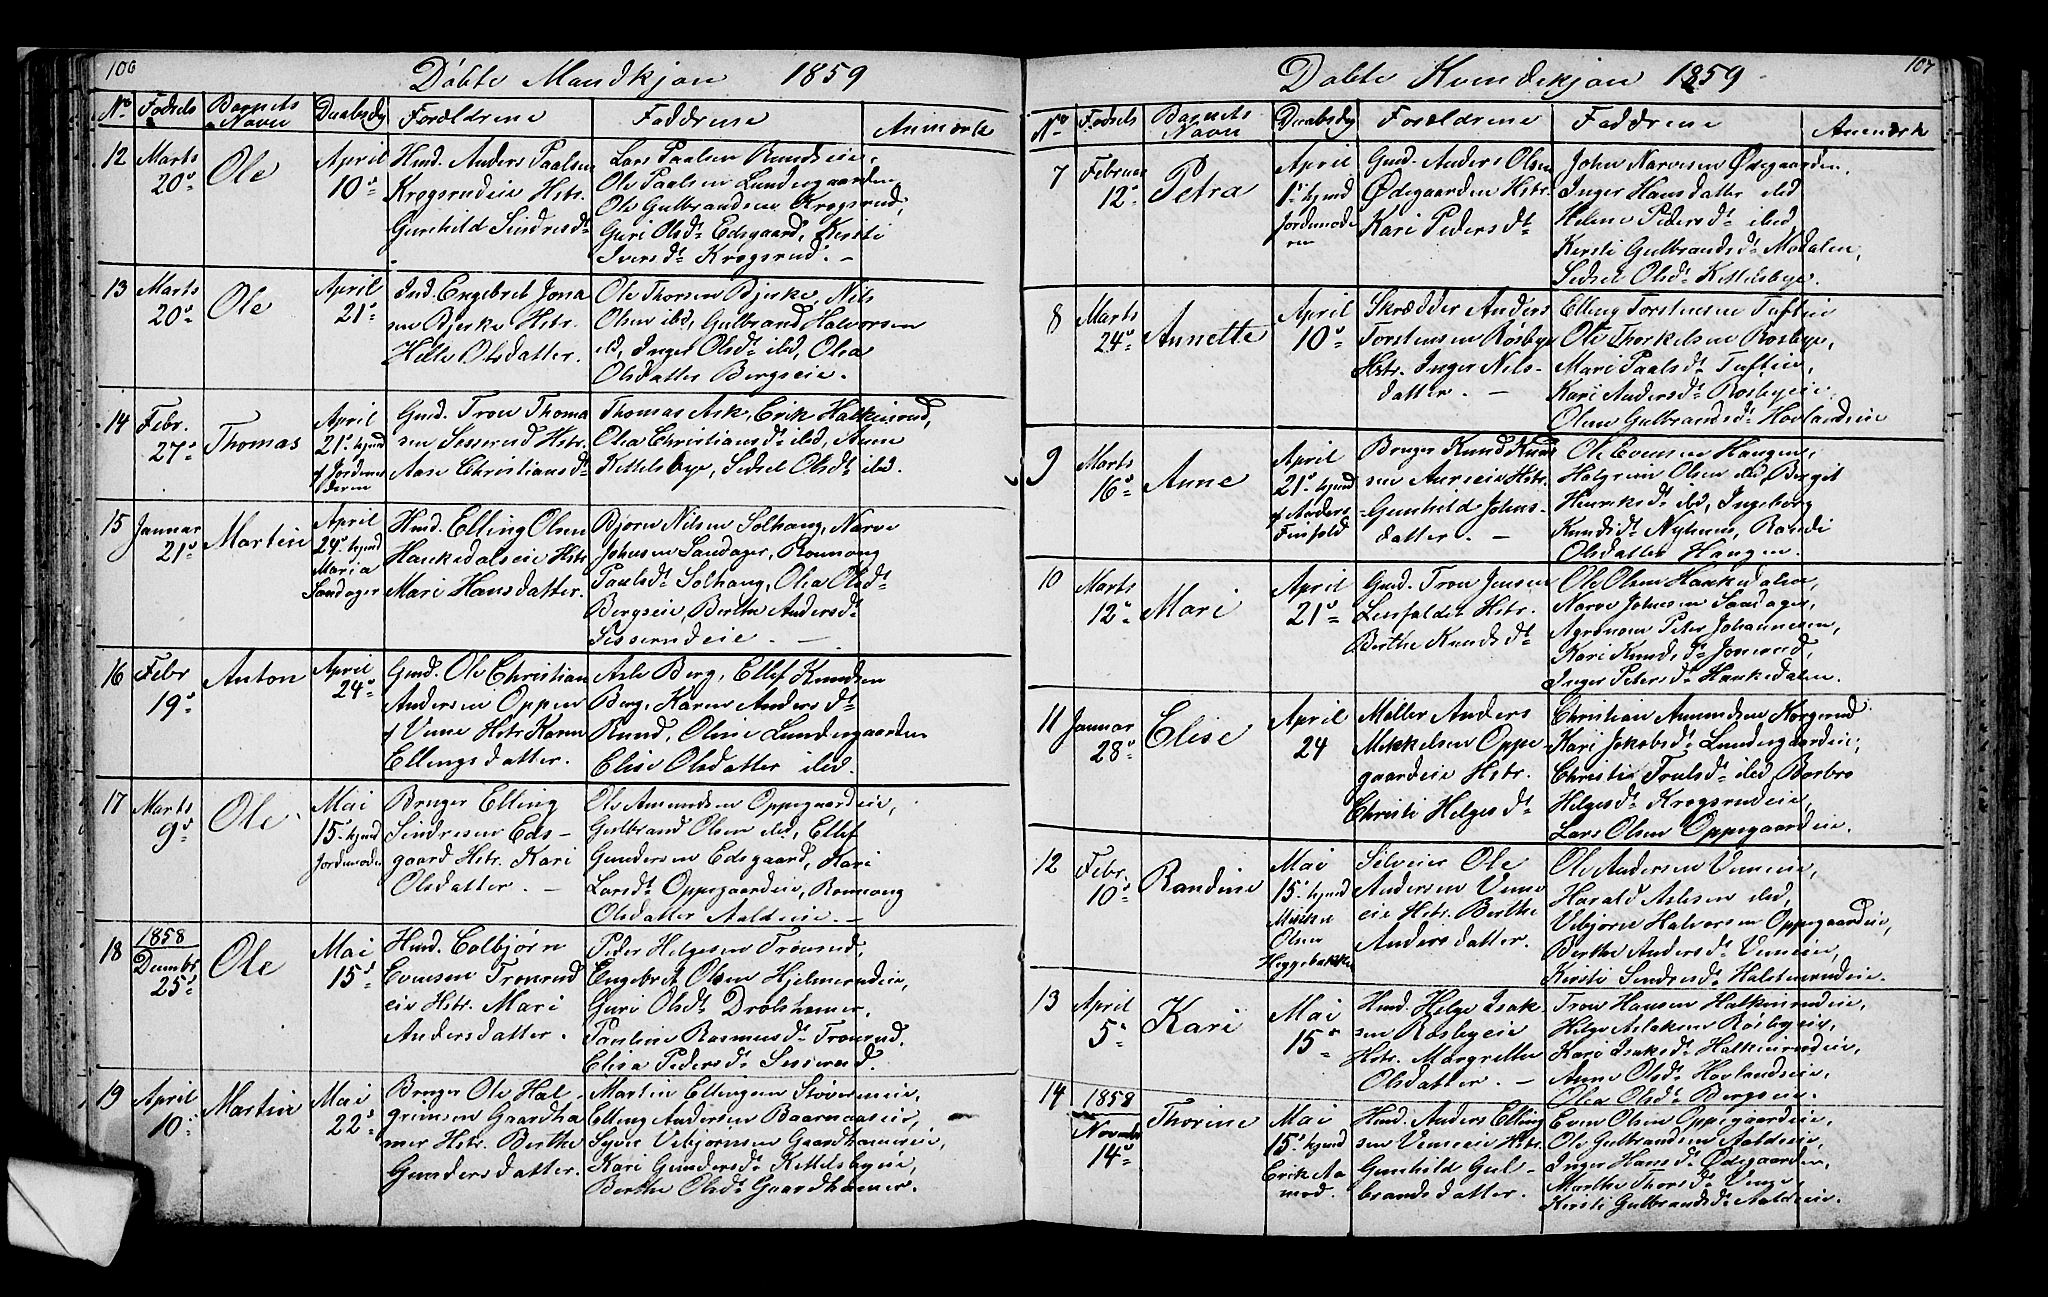 106
Döbte Mandkjøn 1859
No Fødsels Barnets Navn Daabsdg Forældrene Faddrene Anmærk
12 Marts 20de Ole April 10de
Huusd. Anders Paalsen
Krogsrudeie Hstr.
Gunhild Sindresdt
Lars Paalsen Ruudseie,
Ole Paalsen Lundergaarden
Ole Gulbrandsen Krogsrud,
Guri Olsdt Edsgaard, Kirsti
Iversdt Krogsrud. -
13 Marts 20de Ole April 21de
Ind. Engebret Jona
sen Bjerke Hstr.
Helle Olsdatter.
Ole Thorsen Bjerke, Nils
Olsen ibd, Gulbrand Halvorsen
ibd, Inger Olsdt ibd, Olea
Olsdatter Bergseie.
14 Febr. 27de Thomas
April
21de hjmd
af Jordemo
deren
Gmd. Tron Thoma
sen Sesserud Hstr.
Aase Christiansdt
Thomas Ask, Erik Halkinrud,
Olea Christiansdt ibd, Anne
Kittelsbye, Sidsel Olsdt ibd.
15 Januar 21de Martin
April
24de hjmd
Maria
Sandager
Huusd. Elling Olsen
Hankedalseie Hstr.
Mari Hansdatter.
Bjørn Nilsen Solhaug, Narve
Johnsen Sandager, Rønnaug
Paulsdt Solhaug, Olea Olsdt
Bergseie, Berthe Andersdt
Sesserudeie. -
16 Febr 19de Anton April 24de
Gmd. Ole Christian
Andersen Oppen
af Veme Hstr. Karen
Ellingsdatter.
Asle Berg, Ellef Knudsen
Berg, Karen Andersdt
Ruud, Oline Lundergaarden
Elise Olsdatter ibd.
17 Marts 9de Ole
Mai
15de hjmd
Jordemoder
Bruger Elling
Sindresen Eds-
gaard Hstr. Kari
Olsdatter. -
Ole Amundsen Oppegaardeie,
Gulbrand Olsen ibd, Ellef
Gundersen Edsgaard, Kari
Larsdt Oppegaardeie, Rønnaug
Olsdatter Aaldeie. -
18 1858 Decmbr 25de Ole Mai 15de
Huusd. Colbjørn
Evensen Tronrud
eie Hstr. Mari
Andersdatter.
Peder Helgesen Tronrud,
Engebret Olsen Hjelmerudeie,
Guri Olsdt Drolshamer,
Pauline Rasmusdt Tronrud,
Elisa Pedersdt Sesserud.
19 April 10de Martin Mai 22de
Bruger Ole Hal-
grimsen Gaardha
mer Hstr. Berthe
Gundersdatter.
Martin Ellingsen Støvermeie,
Elling Andersen Baarnaaseie,
Syver Vebjørnsen Gaardhamereie,
Kari Gundersdt Kittelsbyeie,
Berthe Olsdt Gaardhamer.
107
Døbte Kvindekjøn 1859
No Fødsels Barnets Navn Daabsdg Forældrene Faddrene Anmærk
7 Februar 12de Petra
April
1de hjmd
Jordemode
ren
Gmd. Anders Olsen
Ødegaarden Hstr.
Kari Pedersdt
John Narvesen Ødegaarden,
Inger Hansdatter ibd
Helene Pedersdt ibd,
Kersti Gulbrandsdt Modalen,
Sidsel Olsdt Kittelsbye.
8 Marts 24de Annette April 10de
Skrædder Anders
Torstensen Rosbye
Hstr. Inger Nils-
datter. -
Elling Torstensen Tuftin
Ole Thorkelsen Rosbye,
Mari Paalsdt Tuftin,
Kari Andersdt Rosbyeie,
Oline Gulbrandsdt Hovlandseie
9 Marts 16de Anne
April
21de hjmd
af Anders
Finsold
Bruger Knud Knud
sen Aurseie Hstr.
Gunhild Johns-
datter. -
Ole Evensen Haugen,
Halgrim Olsen ibd, Bergit
Henriksdt ibd, Ingeborg
Knudsdt Nyhuus, Randi
Olsdatter Haugen.
10 Marts 12de Mari April 21de
Gmd. Tron Jensen
Leerfaldet Hstr.
Berthe Knudsdt
Ole Olsen Hankedalen,
Narve Johnsen Sandager,
Agronom Peter Johannesen,
Kari Knudsdt Jonsrud,
Inger Petersdt Hankedalen.
11 Januar 28de Elise April 24
Møller Anders
Mikkelsen Oppe
gaardeie Hstr.
Christi Helgesdt
Christian Amundsen Korgerud
Kari Jakobsdt Lundergaardeie,
Christie Trulsdt ibd, Barbro
Helgesdt Krogsrudeie,
Lars Olsen Oppegaardeie.
12 Febr. 10de Randine
Mai
15de hjmd
Mikkel
Olsen
Heggebakke
Selveier Ole
Andersen Veme
eie Hstr. Berthe
Andersdatter.
Ole Andersen Vemeie,
Harald Aslesen ibd,
Vebjørn Halvorsen Oppegaardeie,
Berthe Andersdt Vemeie,
Kirsti Sindresdt Halstenrudeie.
13 April 5de Kari Mai 15de
Huusd. Helge Isak-
sen Rosbyeie
Hstr. Margrethe
Olsdatter. -
Tron Hansen Halkinrudeie,
Helge Aslaksen Rösbyeie,
Kari Isaksdt Halkinrudeie,
Anne Olsdt Hovlandseie,
Olea Olsdt Bergseie.
14 1858 Novmbr 14de Thorine
Mai
15de hjmd
Erik Aa
mod.
Huusd. Anders Elling
sen Vemeeie Hstr.
Gunhild Gul-
brandsdatter.
Even Olsen Oppegaardeie,
Ole Gulbrandsen Aaldeie,
Inger Hansdt Ødegaarden,
Marthe Thorsdt Veme,
Kirsti Gulbrandsdt Aaldeie.